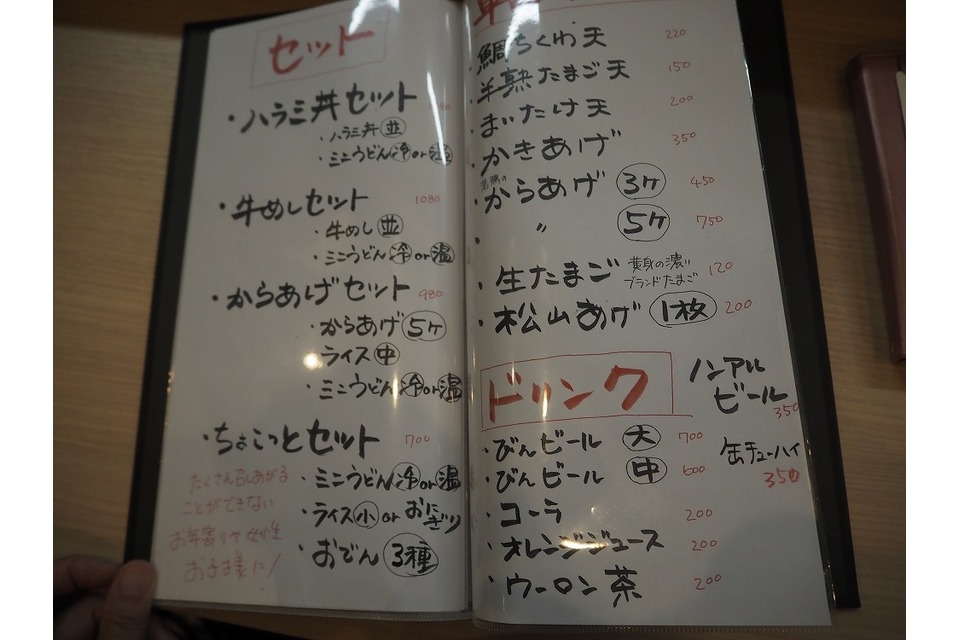 セット
・ハラミ丼セット
・ハラミ丼 並
・ミニうどん 冷or温
・牛めしセット 1080
・牛めし 並
・ミニうどん 冷or温
・からあげセット 980
・からあげ 5ヶ
・ライス 中
・ミニうどん 冷or温
・ちょこっとセット 700
・ミニうどん 冷or温
・ライス 小 or おにぎり
・おでん 3種
たくさん召しあがる
ことができない
お年寄りや女性
お子様に!
・鯛ちくわ天 220
・半熟たまご天 150
・まいたけ天 200
・かきあげ 350
・若鶏の からあげ 3ヶ 450
・ 〃 5ヶ 750
・生たまご 黄身の濃い ブランドたまご 120
・松山あげ 1枚 200
ドリンク
・びんビール 大 700
・びんビール 中 600
・コーラ 200
・オレンジジュース 200
・ウーロン茶 200
ノンアル
ビール
350
缶チューハイ
350